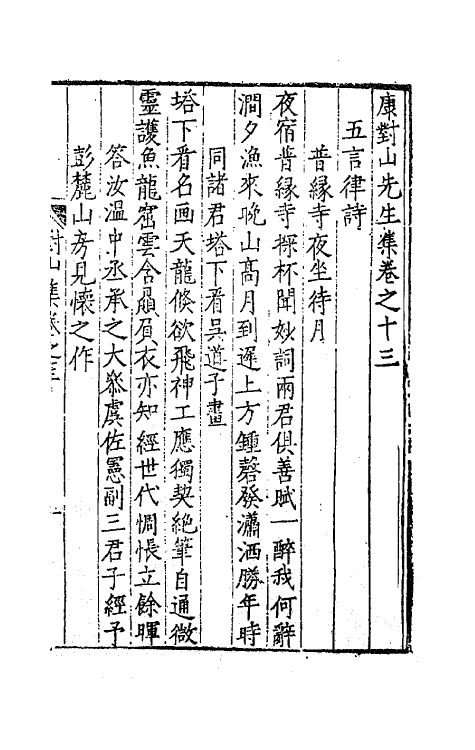 康對山先生集卷之十三
五言律詩
普緣寺夜坐待月
夜宿普緣寺探杯聞妙詞兩君俱善賦一醉我何辭
澗夕漁來晚山高月到遲上方鍾磬發瀟洒勝年時
同諸君塔下看吳道子畫
塔下看名画天龍倏欲飛神工應獨契絶筆自通微
靈護魚龍窟雲含屓衣亦知經世代惆悵立餘暉
答汝溫中丞承之大叅虞佐憲副三君子經予
彭麓山房見懷之作
對山集卷之十三
一